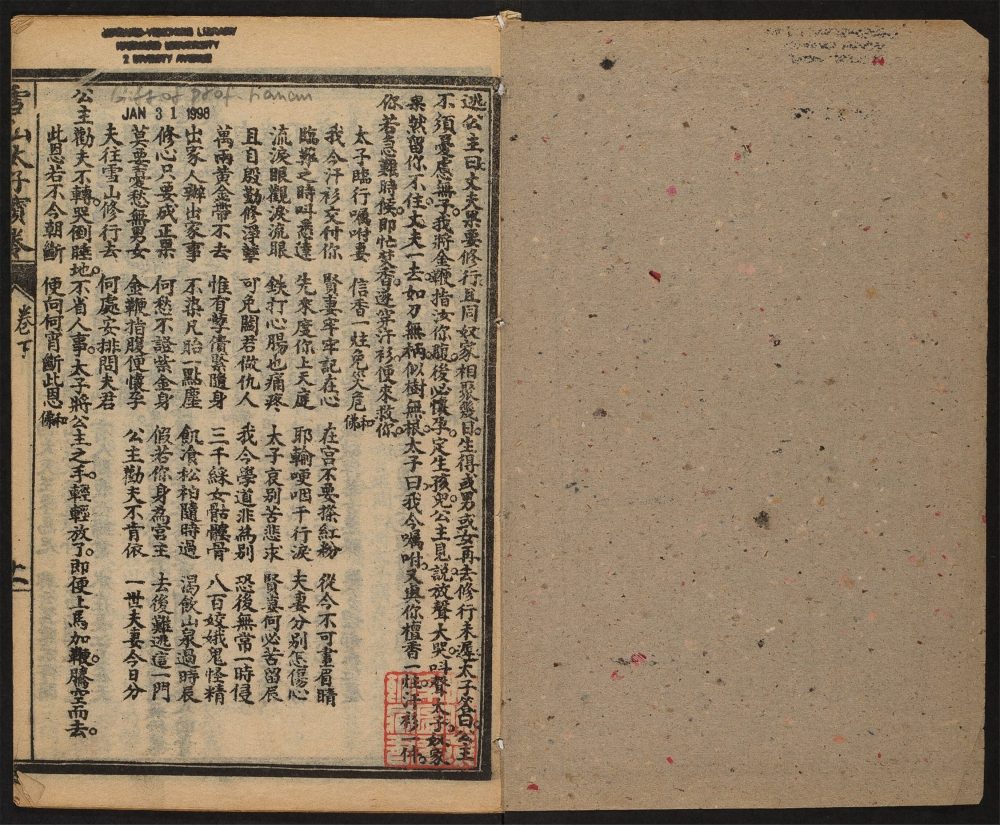 HARVARD-YENCHING LIBRARY
HARVARD UNIVERSITY
2 DIVINITY AVENUE
Gift of Prof. Hanan
JAN 3 1 1998
逃公主曰丈夫果要修行且同奴家相聚幾日生得或男或女再去修行未遲太子答曰公主
不須憂慮無子我將金鞭指汝你頤後必懷孕定生孩兒公主見説放聲大哭呌聲太子奴家
果然留你不住丈夫一去如刀無柄似樹無根太子曰我今囑咐又與你檀香一炷汗衫一件
你若急難時候即忙焚香遂穿汗衫便來救你
太子臨行囑咐妻 信香一炷免災危和佛
我今汗衫交付你 賢妻牢牢記在心 在宮不要搽紅粉 從今不可畫眉睛
臨難之時叫悉達 先來度你上天庭 耶輸哽咽千行淚 夫妻分別怎傷心
流淚眼觀淚流眼 鉄打心腸也痛疼 太子哀别苦悲求 賢妻何必苦留辰
且自殷勤修淨業 可免閻君做仇人 我今學道非為别 恐後無常一時侵
萬兩黃金帶不去 惟有孽債緊隨身 三千綵女骷髏骨 八百姣娥鬼怪精
出家人辦出家事 不染凡胎一點塵 飢飡松柏隨時過 渴飲山泉過時辰
修心只要成正果 何愁不證紫金身 假若你身為宮主 去後難逃這一門
莫要憂愁無男女 金鞭指腹便懷孕 公主勸夫不肯依 一世夫妻今日分
夫往雪山修行去 何處安排問夫君
公主勸夫不轉哭倒睡地不省人事太子將公主之手輕輕放了即便上馬加鞭騰空而去
此恩若不今朝斷 便向何宵斷此恩和佛
雪山太子寶卷 卷下 上